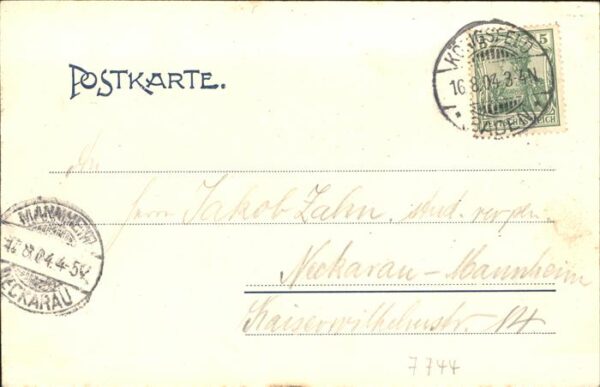 POSTKARTE.
KÖNIGSFELD
16.8.04.3-4N.
BADEN
5
REICH
An
Herrn Jakob Zahn, stud.
Neckarau-Mannheim
Kaiserwilhelmstr. 14
MANNHEIM
17.8.04.4-5V.
NECKARAU
7744